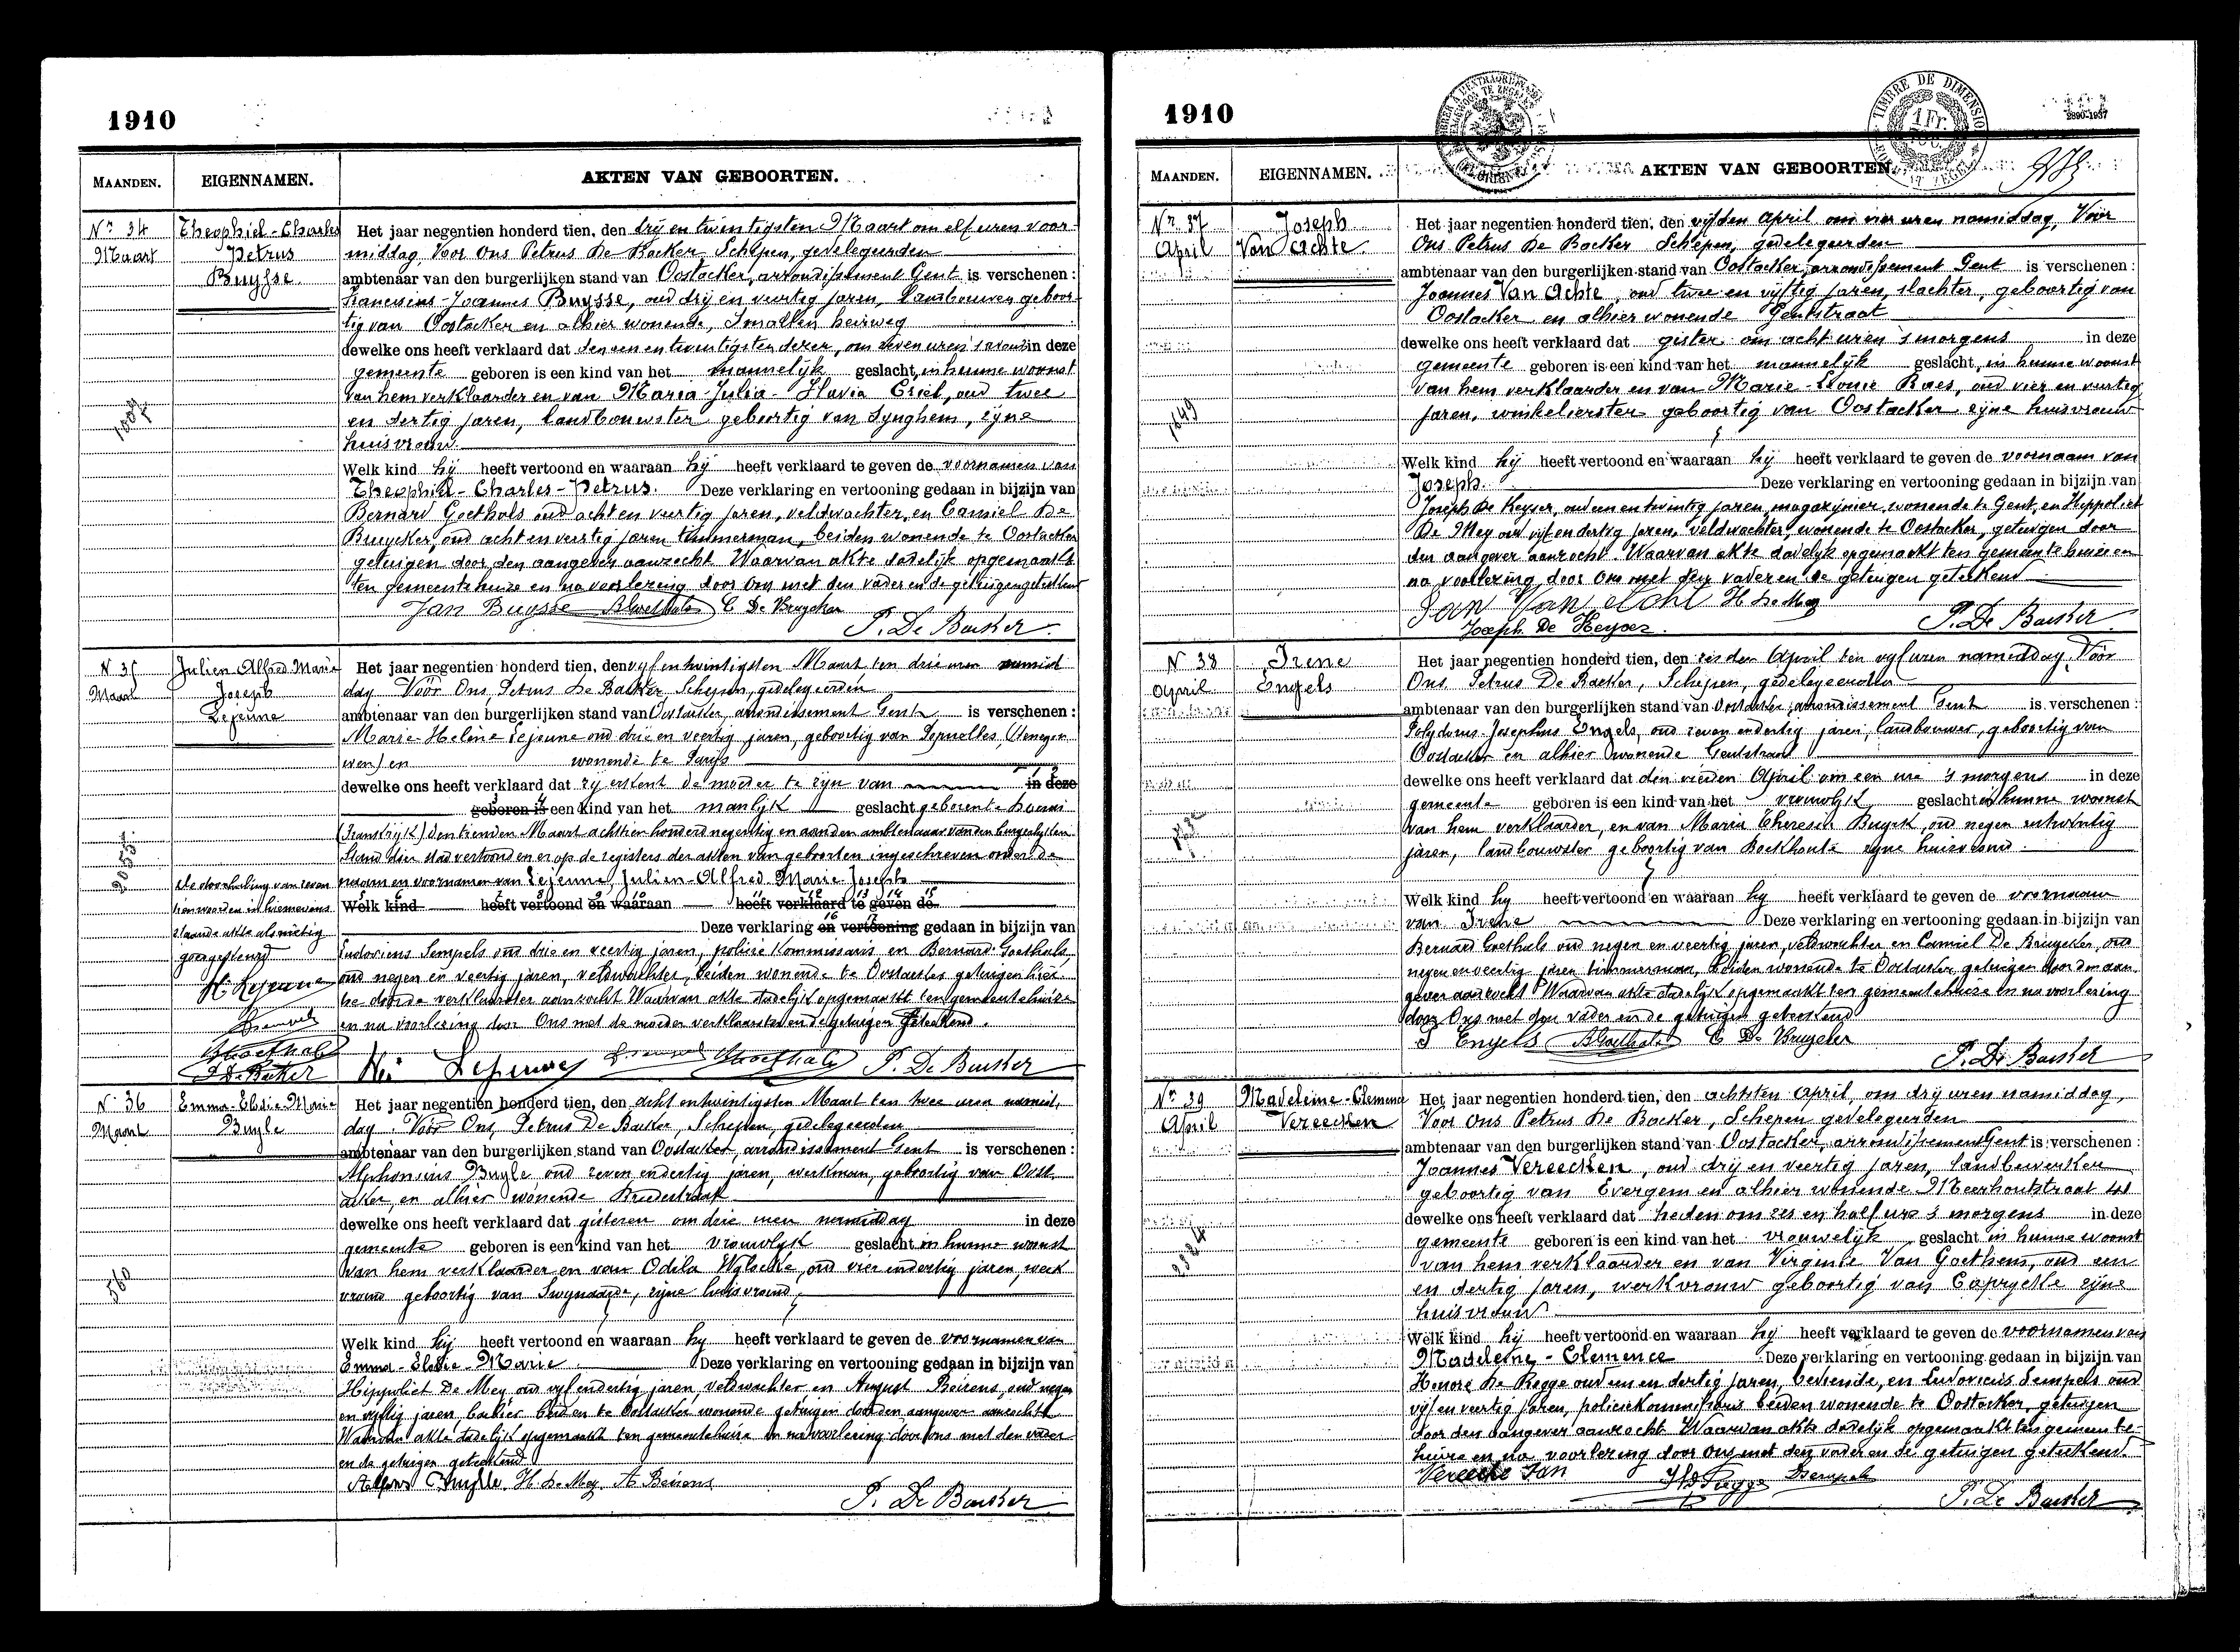 1910
MAANDEN.
EIGENNAMEN.
AKTEN VAN GEBOORTEN.
Nr 34
Maart
Theophiel-Charles
Petrus
Buysse
Het jaar negentien honderd tien, den drij en twintigsten Maart om elf uren voor-
middag Voor Ons Petrus De Backer, Schepen, gedelegeerden
ambtenaar van den burgerlijken stand van Oostacker, arrondissement Gent is verschenen :
Franciscus-Joannes Buysse, oud drij en veertig jaren, Landbouwer geboor-
tig van Oostacker en alhier wonende, Smallen heirweg
dewelke ons heeft verklaard dat den een en twintigsten dezer, om zeven uren 's avonds in deze
gemeente geboren is een kind van het mannelijk geslacht, in hunne woonst
van hem verklaarder en van Maria-Julia-Flavia Criel, oud twee
en dertig jaren, landbouwster geboortig van Synghem, zijne
huisvrouw.
Welk kind hij heeft vertoond en waaraan hij heeft verklaard te geven de voornamen van
Theophiel-Charles-Petrus. Deze verklaring en vertooning gedaan in bijzijn van
Bernard Goethals oud acht en veertig jaren, veldwachter, en Camiel De
Bruycker, oud acht en veertig jaren timmerman, beiden wonende te Oostacker
getuigen door den aangever aanzocht Waarvan akte dadelijk opgemaakt
ten gemeentehuize en na voorlezing door Ons met den vader en de getuigen geteekend
Jan Buysse BGoethals C De Bruycker
P. De Backer
N 35
Maart
Julien Alfred Marie
Joseph
Lejeune
Het jaar negentien honderd tien, den vyf en twintigsten Maart ten drie uren namid
dag Voor Ons, Petrus De Backer, Schepen, gedelegeerden
ambtenaar van den burgerlijken stand van Oostacker, arrondissement Gent is verschenen :
Marie-Helène Lejeune oud drie en veertig jaren, geboortig van
en wonende te Parijs
dewelke ons heeft verklaard dat zij erkent de moeder te zijn van in deze
geboren is een kind van het manlijk geslacht geboren te
(Frankrijk) den tienden Maart achttien honderd negentig en aan den ambtenaar van den burgerlijken
Stand dier stad vertoond en er op de registers der akten van geboorten ingeschreven onder de
naam en voornamen van Lejeune, Julien-Alfred-Marie-Joseph
Welk kind heeft vertoond en waaraan heeft verklaard te geven de
Deze verklaring en vertooning gedaan in bijzijn van
Ludovicus Sempels oud drie en veertig jaren, policie kommissaris en Bernard Goethals,
oud negen en veertig jaren, veldwachter, beiden wonende te Oostacker getuigen hier
toe door de verklaarster aanzocht Waarvan akte dadelijk opgemaakt ten gemeentehuize
en na voorlezing door Ons met de moeder verklaarster en de getuigen geteekend.
De doorhaling van zeven
tien woorden in hiernevens
staande akte als nietig
goedgekeurd
H. Lejeune
Sempels
BGoethals
P. De Backer
Lejeune Sempels BGoethals P. De Backer
N. 36
Maart
Emma-Elodie-Marie
Buyle
Het jaar negentien honderd tien, den acht en twintigsten Maart ten twee uren namid,
dag Voor Ons, Petrus De Backer, Schepen, gedelegeerden
ambtenaar van den burgerlijken stand van Oostacker, arrondissement Gent is verschenen :
Alphonsius Buyle, oud zeven en dertig jaren, werkman, geboortig van Oost
acker, en alhier wonende Bredestraat
dewelke ons heeft verklaard dat gisteren om drie uren namiddag in deze
gemeente geboren is een kind van het vrouwlijk geslacht in hunne woonst
van hem verklaarder en van Odila oud vier en dertig jaren, werk
vrouw geboortig van Swynaarde, zijne huisvrouw,
Welk kind hij heeft vertoond en waaraan hy heeft verklaard te geven de voornamen van
Emma-Elodie-Marie Deze verklaring en vertooning gedaan in bijzijn van
Hippoliet De Mey oud vyf en dertig jaren, veldwachter en August Beirens, oud negen
en vyftig jaren, beiden te Oostacker wonende getuigen door den aangever aanzocht
Waarvan akte dadelijk opgemaakt ten gemeentehuize en na voorlezing door ons met den vader
en de getuigen geteekend
Alfons Buyle H De Mey A Beirens
P. De Backer
1910
MAANDEN.
EIGENNAMEN.
AKTEN VAN GEBOORTEN.
TIMBRE DE DIMENSION
1 Fr.
Nr. 37
April
Joseph
Van Achte
Het jaar negentien honderd tien, den vijfden April om vier uren namiddag, Voor
Ons Petrus De Backer Schepen, gedelegeerden
ambtenaar van den burgerlijken stand van Oostacker, arrondissement Gent is verschenen :
Joannes Van Achte, oud twee en vijftig jaren, slachter, geboortig van
Oostacker en alhier wonende Gentstraat
dewelke ons heeft verklaard dat gister om acht uren 's morgens in deze
gemeente geboren is een kind van het mannelijk geslacht, in hunne woonst
van hem verklaarder en van Marie-Leonie Raes, oud vier en veertig
jaren, winkelierster geboortig van Oostacker zijne huisvrouw
Welk kind hij heeft vertoond en waaraan hij heeft verklaard te geven de voornaam van
Joseph. Deze verklaring en vertooning gedaan in bijzijn van
Joseph De Keyser, oud een en twintig jaren, magazijnier, wonende te Gent, en Hippoliet
De Mey oud vijf en dertig jaren, veldwachter, wonende te Oostacker, getuigen door
den aangever aanzocht. Waarvan akte dadelyk opgemaakt ten gemeentehuize en
na voorlezing door Ons met den vader en de getuigen geteekend
Jan Van Acht H De Mey
Joseph De Keyser. P. De Backer
N 38
April
Irene
Engels
Het jaar negentien honderd tien, den zesden April ten vyf uren namiddag Voor
Ons Petrus De Backer, Schepen, gedelegeerden
ambtenaar van den burgerlijken stand van Oostacker, arrondissement Gent is verschenen :
Polydorus-Josephus Engels, oud zeven en dertig jaren, landbouwer, geboortig van
Oostacker en alhier wonende Gentstraat
dewelke ons heeft verklaard dat den vierden April om een ure 's morgens in deze
gemeente geboren is een kind van het vrouwlijk geslacht in hunne woonst
van hem verklaarder, en van Maria Theresia Buyck, oud negen en twintig
jaren, landbouwster geboortig van Boekhoute zijne huisvrouw.
Welk kind hy heeft vertoond en waaraan hy heeft verklaard te geven de voornaam
van Irene Deze verklaring en vertooning gedaan in bijzijn van
Bernard Goethals oud negen en veertig jaren, veldwachter en Camiel De Bruycker, oud
negen en veertig jaren timmerman, beiden wonende te Oostacker, getuigen door den aan
gever aanzocht Waarvan akte dadelijk opgemaakt ten gemeentehuize en na voorlezing
door Ons met den vader en de getuigen geteekend
P Engels BGoethals C De Bruycker
P. De Backer
Nr. 39
April
Madeleine-Clemence
Vereecken
Het jaar negentien honderd tien, den achtsten April, om drij uren namiddag,
Voor Ons Petrus De Backer, Schepen gedelegeerden
ambtenaar van den burgerlijken stand van Oostacker, arrondissement Gent is verschenen :
Joannes Vereecken, oud drij en veertig jaren, landbewerker
geboortig van Evergem en alhier wonende Meerhoutstraat 41
dewelke ons heeft verklaard dat heden om zes en half ure 's morgens in deze
gemeente geboren is een kind van het vrouwelijk geslacht in hunne woonst
van hem verklaarder en van Virginie Van Goethem, oud een
en dertig jaren, werkvrouw geboortig van Caprycke zijne
huisvrouw
Welk kind hij heeft vertoond en waaraan hij heeft verklaard te geven de voornamen van
Madeleine-Clemence Deze verklaring en vertooning gedaan in bijzijn van
Honoré De Rogge oud een en dertig jaren, bediende, en Ludovicus Sempels oud
vijf en veertig jaren, policiekommissaris beiden wonende te Oostacker, getuigen
door den aangever aanzocht Waarvan akte dadelijk opgemaakt ten gemeente-
huize en na voorlezing door Ons met den vader en de getuigen geteekend.
Vereecke Jan Sempels
P. De Backer